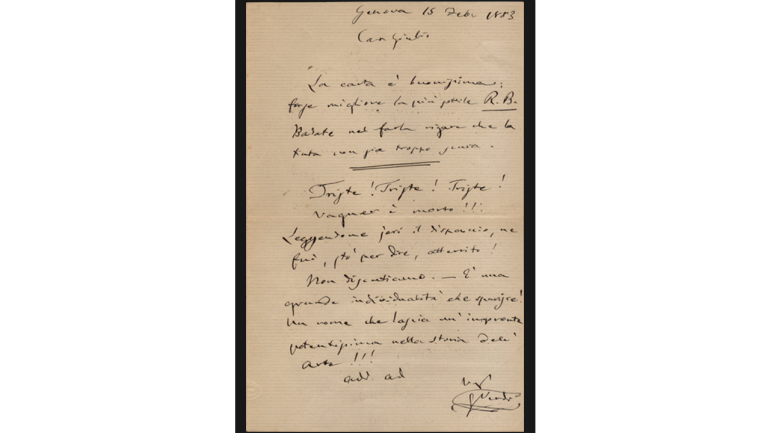 Genova 15 Feb. 1883
Car Giulio
La carta è buonissima;
forse migliore la più sottile R. B.
Badate nel farla rigare che la
tinta non sia troppo scura.
Triste! Triste! Triste!
Vagner è morto!!!
Leggendone jeri il dispaccio, ne
fui, sto per dire, atterrito!
Non discutiamo. — È una
grande individualità che sparisce!
Un nome che lascia un'impronta
potentissima nella storia dell'
Arte!!!
ad. ad.
G Verdi